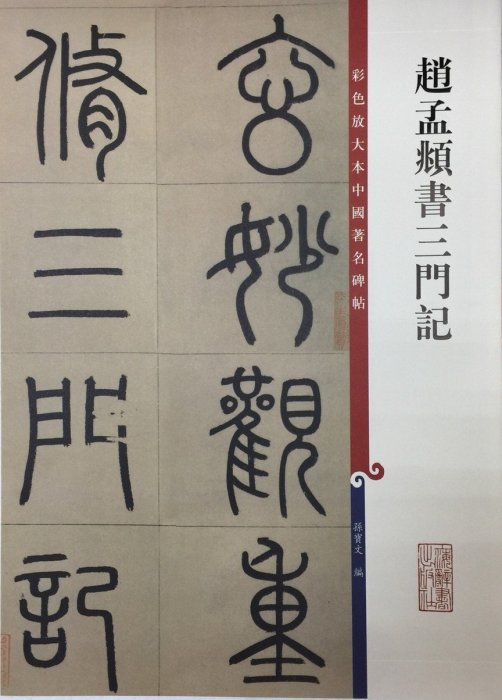 趙孟頫書三門記
彩色放大本中國著名碑帖
孫寶文 編
上海辭書
出版社
玄妙觀重
脩三門記